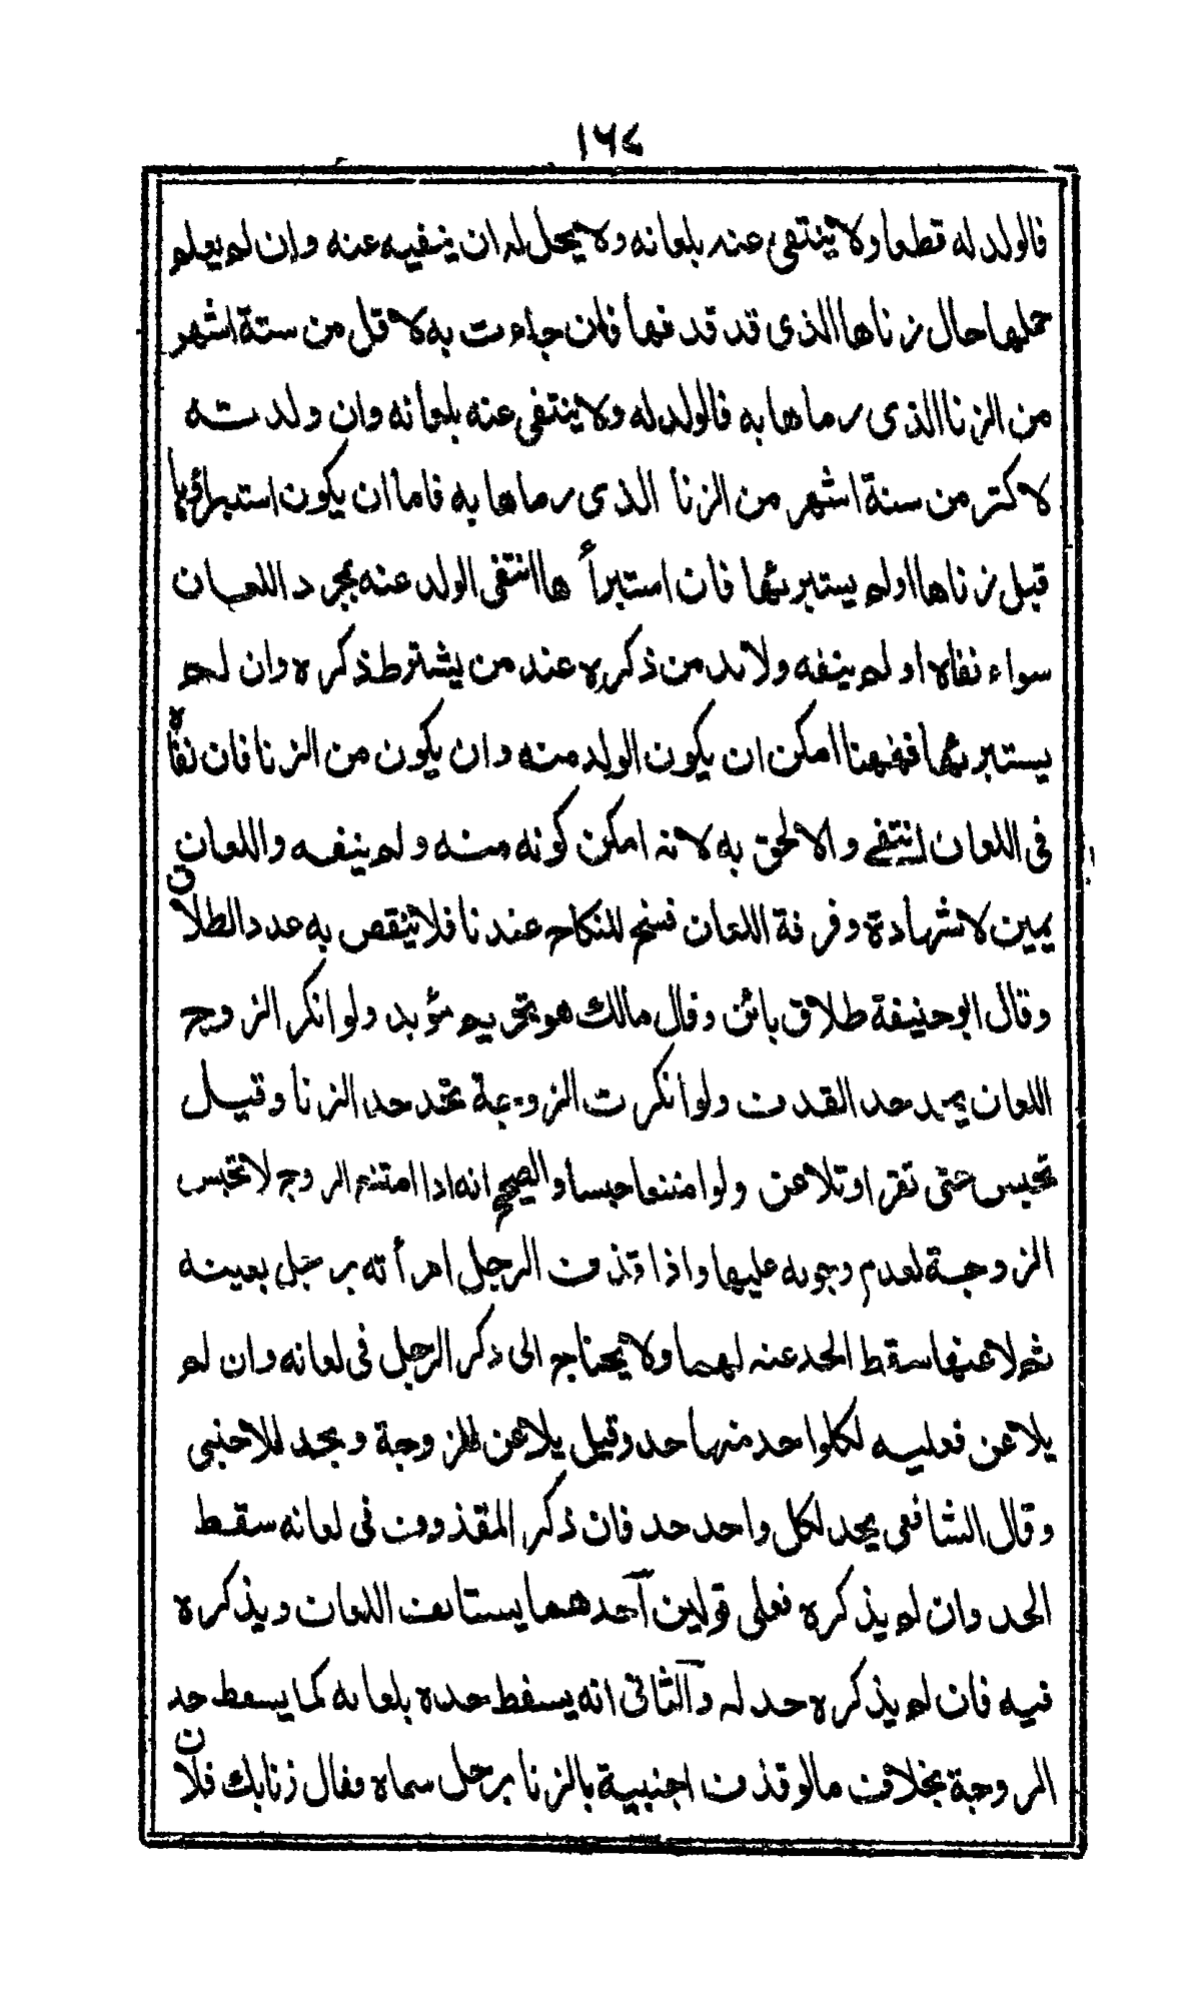 ١٦٨
فالولد له قطعا ولا ينتفى عنه بلعانه ولا يحل له ان ينفيه عنه وان لم يعلم
حملها حال زناها الذى قد قذفها فان جاءت به لاقل من ستة اشهر
من الزنا الذى رماها به فالولد له ولا ينتفى عنه بلعانه وان ولدته
لاكثر من ستة اشهر من الزنا الذى رماها به فاما ان يكون استبرأها
قبل زناها او لم يستبرئها فان استبرأها انتفى الولد عنه بمجرد اللعان
سواء نفاه او لم ينفه ولابد من ذكره عند من يشترط ذكره وان لم
يستبرئها فههنا امكن ان يكون الولد منه وان يكون من الزنا فان نفاه
فى اللعان انتفى والا لحق به لانه امكن كونه منه ولم ينفه واللعان
يمين لاشهادة وفرقة اللعان فسخ للنكاح عندنا فلا ينقص به عدد الطلاق
وقال ابوحنيفة طلاق بائن وقال مالك هو تحريم مؤبد ولو انكر الزوج
اللعان يحد حد القذف ولو انكرت الزوجة تحد حد الزنا وقيل
تحبس حتى تقر او تلاعن ولو امتنعا حبسا والصحيح انه اذا امتنع الزوج لا تحبس
الزوجة لعدم وجوبه عليها واذا قذف الرجل امرأته برجل بعينه
ثم لاعنها سقط الحد عنه لهما ولا يحتاج الى ذكر الرجل فى لعانه وان لم
يلاعن فعليه لكل واحد منهما حد وقيل يلاعن للزوجة ويحد للاجنبى
وقال الشافعى يحد لكل واحد حد فان ذكر المقذوف فى لعانه سقط
الحد وان لم يذكره فعلى قولين آحدهما يستانف اللعان ويذكره
فيه فان لم يذكره حد له وآلثانى انه يسقط حده بلعانه كما يسقط حد
الزوجة بخلاف مالو قذف اجنبية بالزنا برجل سماه وقال زنابك فلان